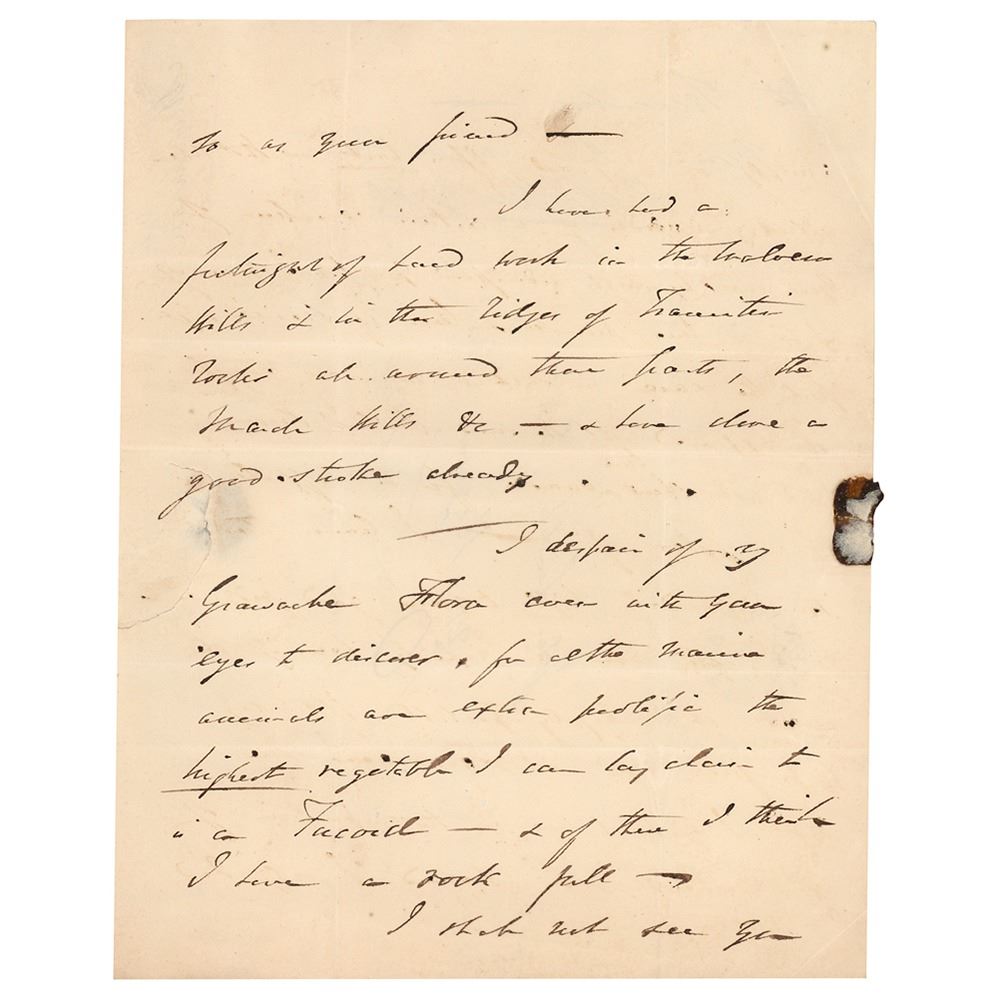 to as your friend —
I have had a
fortnight of hard work in the Malvern
Hills & in the ridges of Transition
rocks all around these parts, the
Hills &c — & have done a
good stroke already.
I despair of my
Grawacke Flora even with your
eyes to discover, for altho marine
animals are extra prolific the
highest vegetable I can lay claim to
is a Fucoid — & of these I think
I have a rock full —
I shall not see you